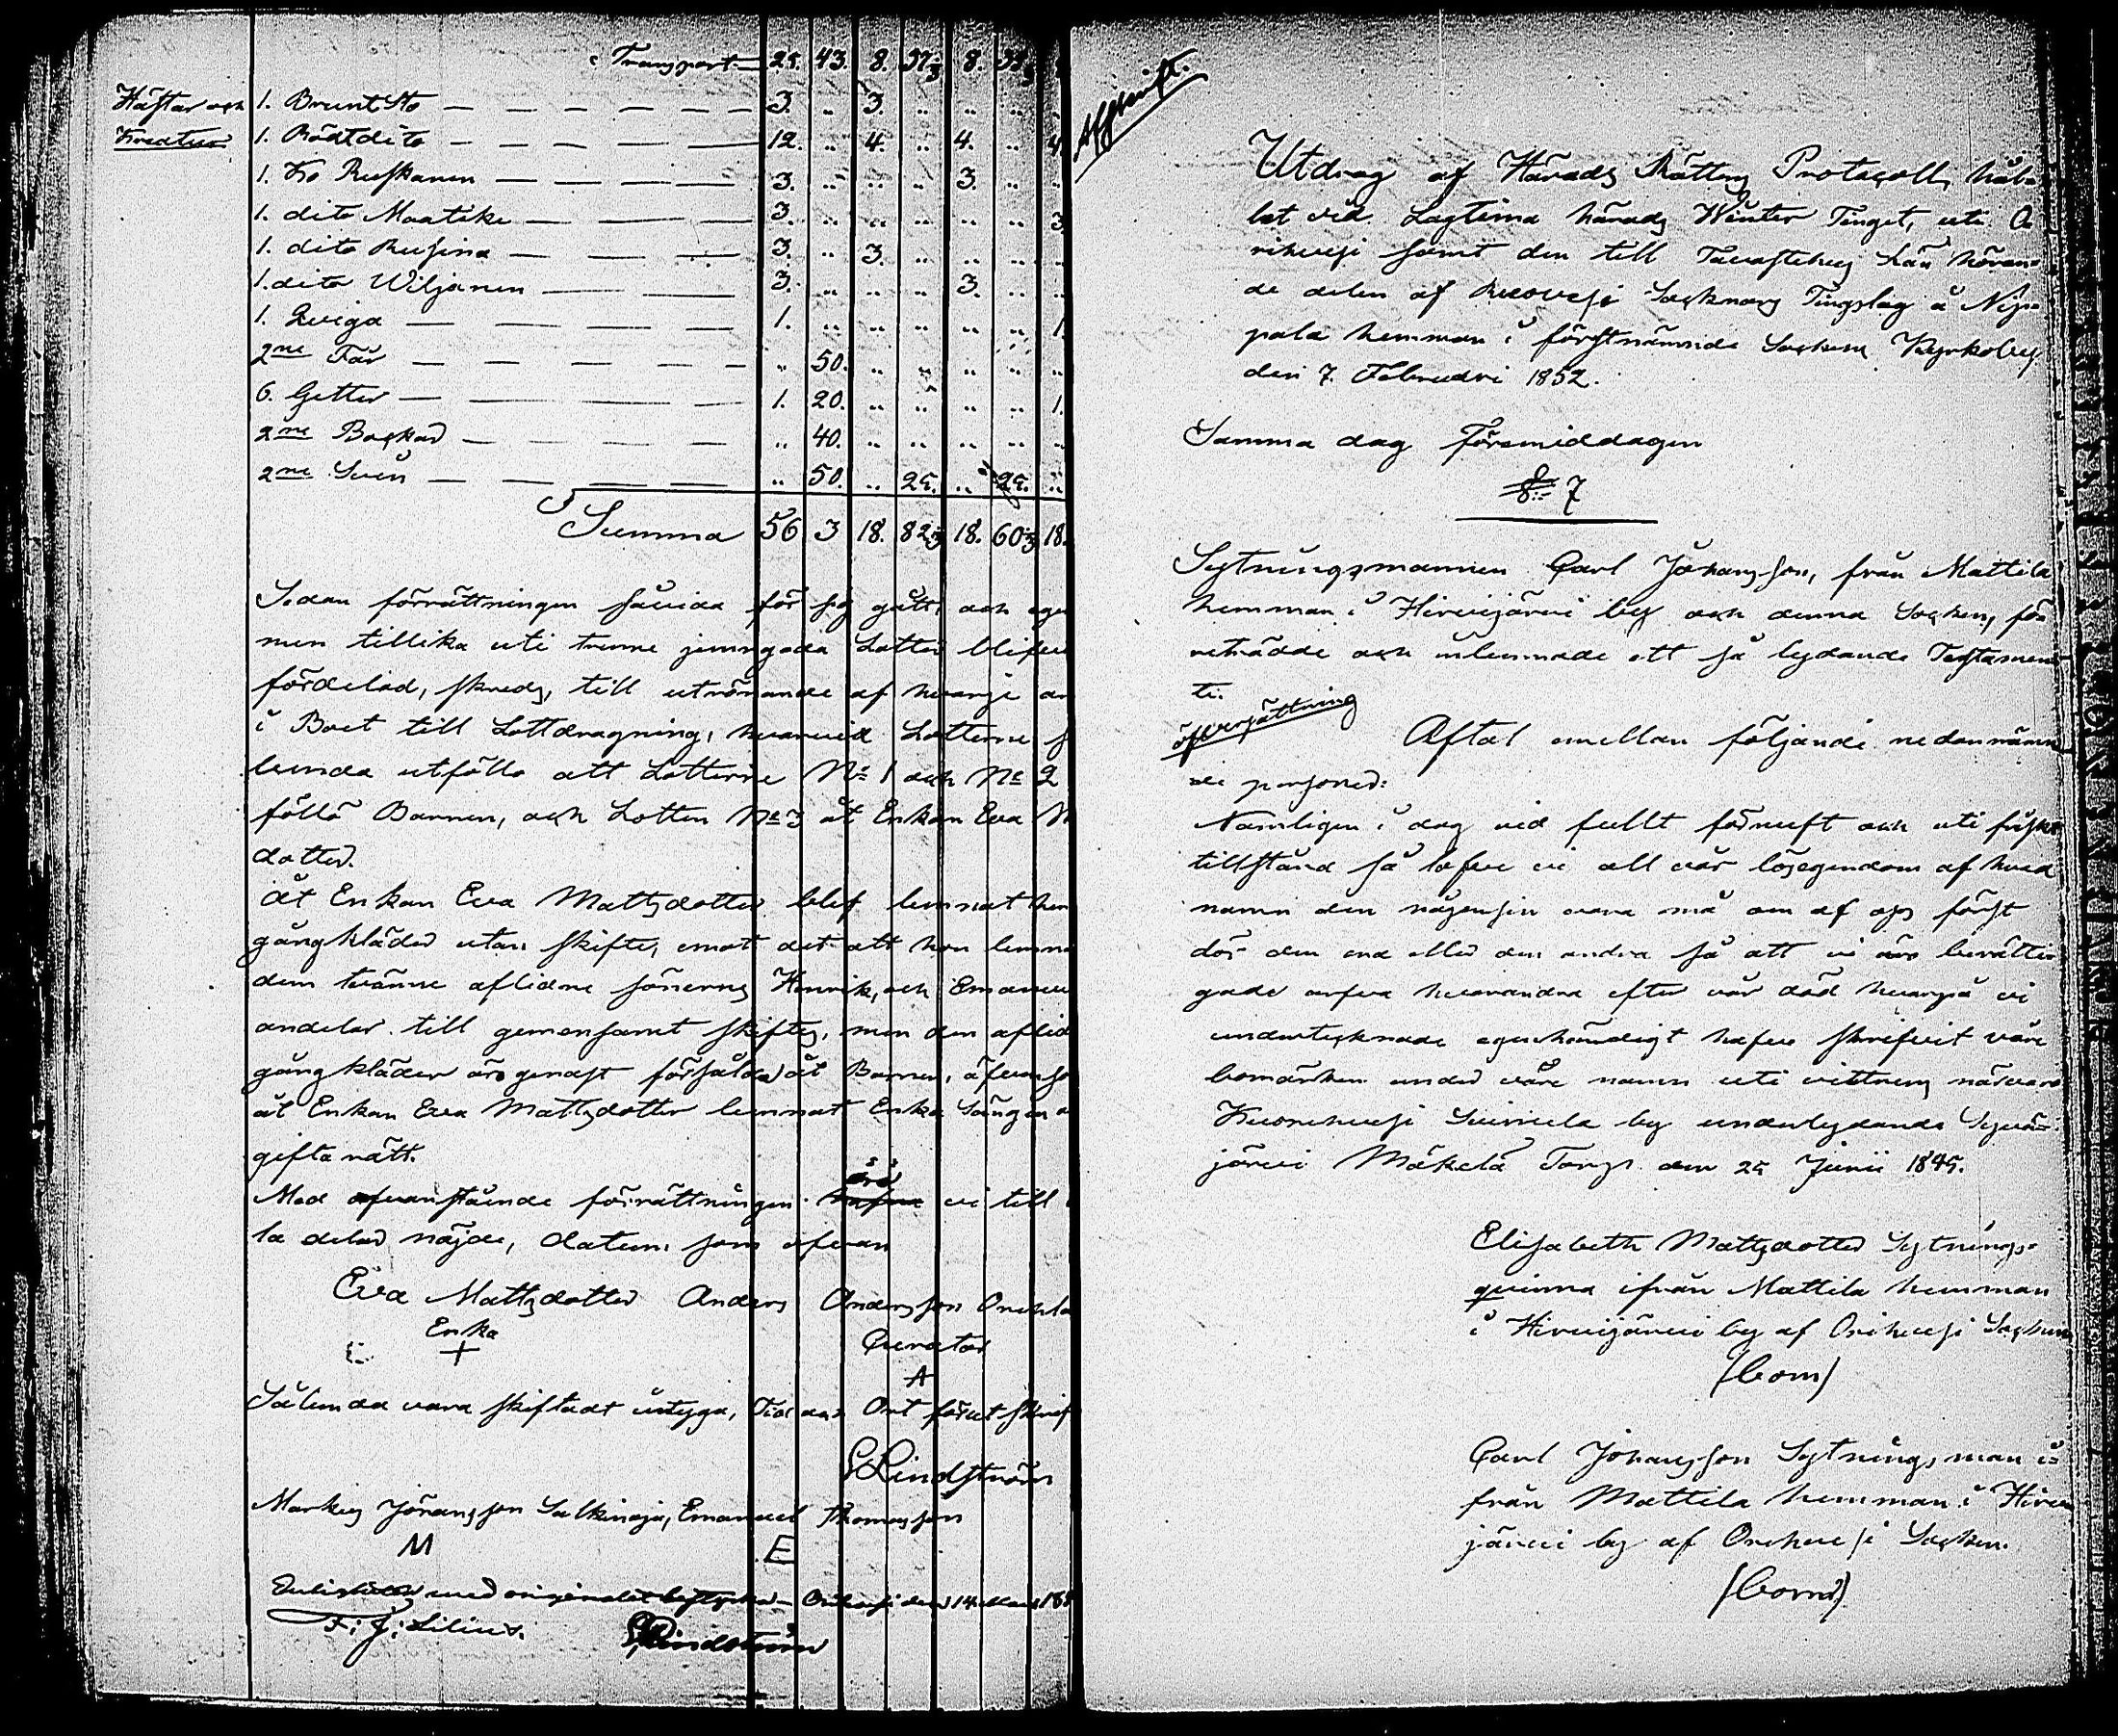 Transport 25. 43. 8. 57⅓ 8. 35⅓
Hästar och 1. Brunt Sto — 3. .. 3. .. .. ..
Kreatur 1. Rödt dito — 12. .. 4. .. 4. .. 4.
1. Ko Ruskanen — 3. .. .. .. 3. .. ..
1. dito Maatike — 3. .. .. .. .. .. 3.
1. dito Rusina — 3. .. 3. .. .. .. ..
1. dito Wiljanen — 3. .. .. .. 3. .. ..
1. Qviga — 1. .. .. .. .. .. 1.
2ne Får — .. 50. .. .. .. .. ..
6. Getter — 1. 20. .. .. .. .. 1.
2ne Backar — .. 40. .. .. .. .. ..
2ne Svin — .. 50. .. 25. .. 25. ..
Summa 56 3 18. 82⅓ 18. 60⅓ 18.
Sedan förrättningen såvida för sig gått, och egen
men tillika uti trenne jemngoda Lotter blifvit
fördelad, skreds, till utrönande af hvarje an
i Boet till Lottdragning, hvarvid Lotterne så
lunda utföllo att Lotterne No 1 och No 2
föllo Barnen, och Lotten No 3 åt Enkan Eva M
dotter.
Åt Enkan Eva Mattsdotter blef lemnat hen
gångkläder utan skifte, emot det att hon lemna
dem tvänne aflidne sönernes Henrik, och Emanuel
andelar till gemensamt skiftes, men den aflid
gångkläder äro genast försålda åt Barnen, äfven så
åt Enkan Eva Mattsdotter lemnat Enke Sängen o
giftorätt.
Med ofvanstående förrättningen äro vi till
la delar nöjde, datum som ofvan
Eva Mattsdotter Anders Andersson Onchla
Enka Curator
+ A
Sålunda vara skiftadt intyga, Tid och Ort förut skrif
S Lindström
Markus Jöransson Salkinoja, Emanuel Thomasson
M E
med originalet Orihvesi den 14 Mars 18
F: J: Lilius. S Lindström
Afskrift.
Utdrag af Härads Rättens Protocoll, hål-
let vid Lagtima härads Winter Tinget, uti O-
rihvesi samt den till Tavastehus Län höran-
de delen af Ruovesi Socknars Tingslag å Nip-
pala hemman i förstnämnde Sockens Kyrkoby
den 7. Februari 1852.
Samma dag Förmiddagen
§ 7
Sytningsmannen Carl Johansson, från Mattila
hemman i Hirvijärvi by och denna Socken, för
reträdde och inlemnade ett så lydande Testamen-
te.
öfversättning Aftal emellan följande nedannämn-
de personer:
Nämligen i dag vid fullt förnuft och uti friskt
tillstånd så lofve vi all vår lösegendom af hvad
namn den någonsin vara må om af oss först
dör den ena eller den andra så att vi äro berätti-
gade ärfva hvarandra efter vår död hvarpå vi
undertecknade egenhändigt hafve skrifvit våre
bomärken under våre namn uti vittnens närvaro
Kuorehvesi Suinula by underlydande Syvän-
järvi Mäkelä Torp den 25 Junii 1845.
Elisabeth Mattsdotter Sytnings-
qvinna ifrån Mattila hemman
i Hirvijärvi by af Orihvesi Socken
(bom)
Carl Johansson Sytningsman i-
från Mattila hemman i Hirvi
järvi by af Orihvesi Socken.
(bom)